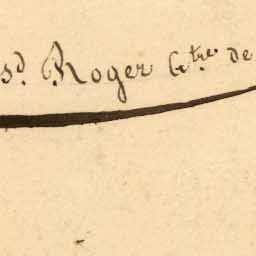 sd. Roger Gtre. de